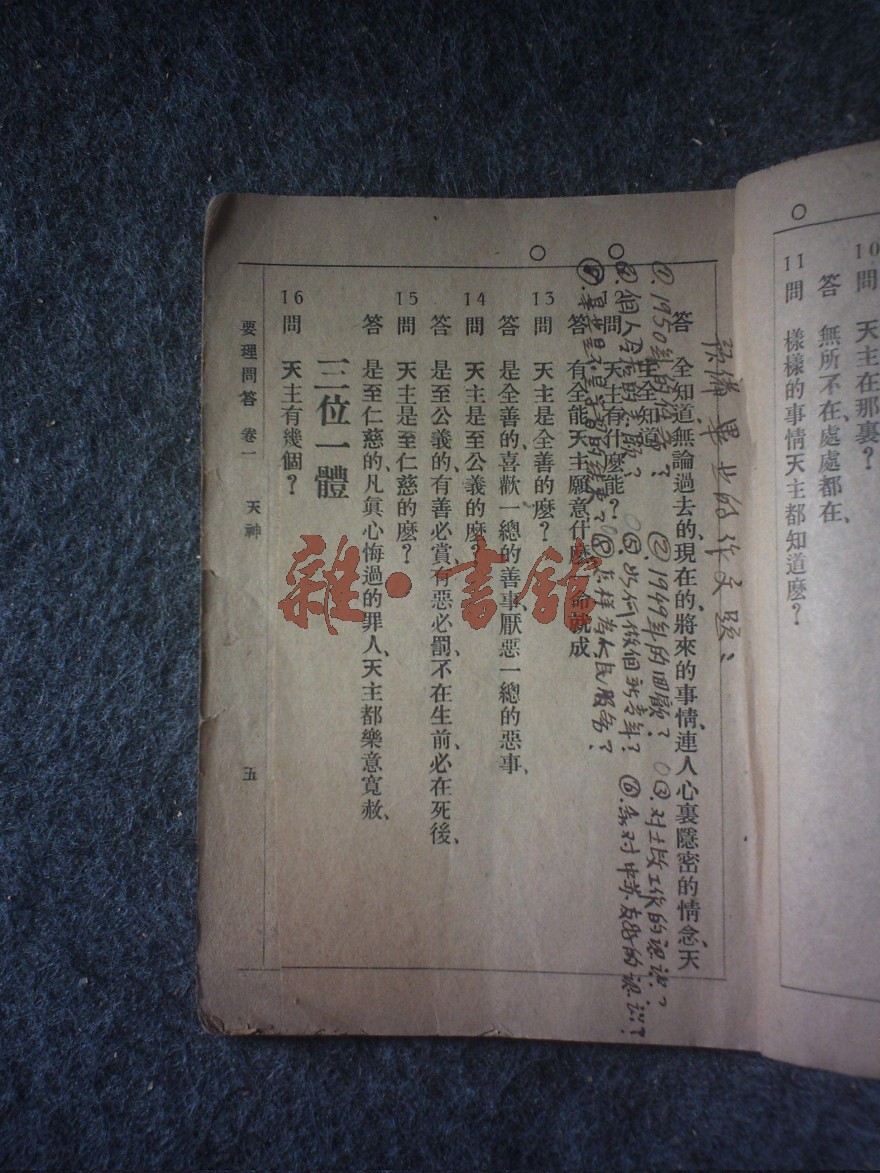 10 問 天主在那裏？
答 無所不在、處處都在、
11 問 樣樣的事情天主都知道麽？
預備畢业的作文題：
答 全知道、無論過去的、現在的、將來的事情、連人心裏隱密的情念、天
主全知道、
①. 1950年的任务？ ②. 1949年的回顧？ ③. 对土改工作的認识？
12 問 天主有什麽能？
④. 個人今后的志願？ ⑤. 如何做個新青年？ ⑥. 我对中苏友好的認识？
答 有全能、天主願意什麽、命就成
⑧. 怎样为人民服务？
13 問 天主是全善的麽？
答 是全善的、喜歡一總的善事、厭惡一總的惡事、
14 問 天主是至公義的麽？
答 是至公義的、有善必賞、有惡必罰、不在生前、必在死後、
15 問 天主是至仁慈的麽？
答 是至仁慈的、凡眞心悔過的罪人、天主都樂意寬赦、
三位一體
16 問 天主有幾個？
要理問答 卷一 天神 五
雜·書館